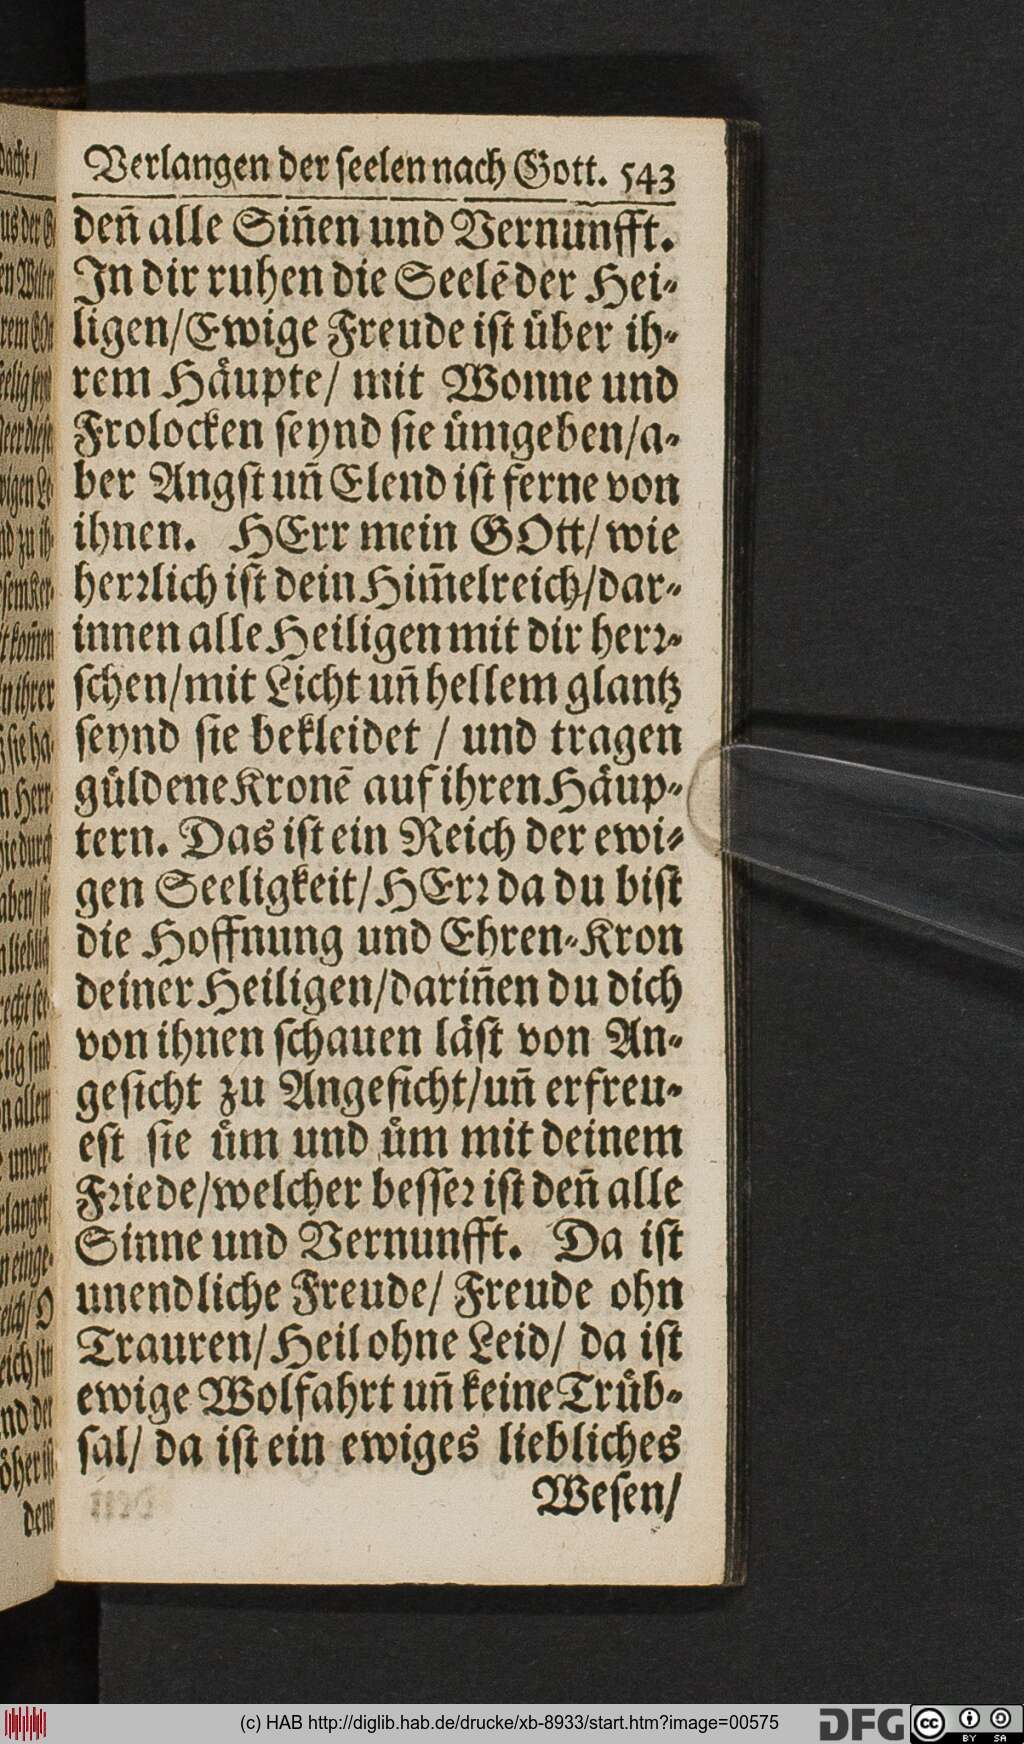 Verlangen der seelen nach Gott. 543
deñ alle Siñen und Vernunfft.
In dir ruhen die Seelē der Hei-
ligen/Ewige Freude ist über ih-
rem Häupte/ mit Wonne und
Frolocken seynd sie ümgeben/a-
ber Angst uñ Elend ist ferne von
ihnen. HErr mein GOtt/ wie
herrlich ist dein Him̃elreich/dar-
innen alle Heiligen mit dir herr-
schen/mit Licht uñ hellem glantz
seynd sie bekleidet / und tragen
güldene Kronē auf ihren Häup-
tern. Das ist ein Reich der ewi-
gen Seeligkeit/HErr da du bist
die Hoffnung und Ehren-Kron
deiner Heiligen/dariñen du dich
von ihnen schauen läst von An-
gesicht zu Angesicht/uñ erfreu-
est sie üm und üm mit deinem
Friede/welcher besser ist deñ alle
Sinne und Vernunfft. Da ist
unendliche Freude/ Freude ohn
Trauren/Heil ohne Leid/ da ist
ewige Wolfahrt uñ keine Trüb-
sal/ da ist ein ewiges liebliches
Wesen/
(c) HAB http://diglib.hab.de/drucke/xb-8933/start.htm?image=00575
DFG
cc BY SA